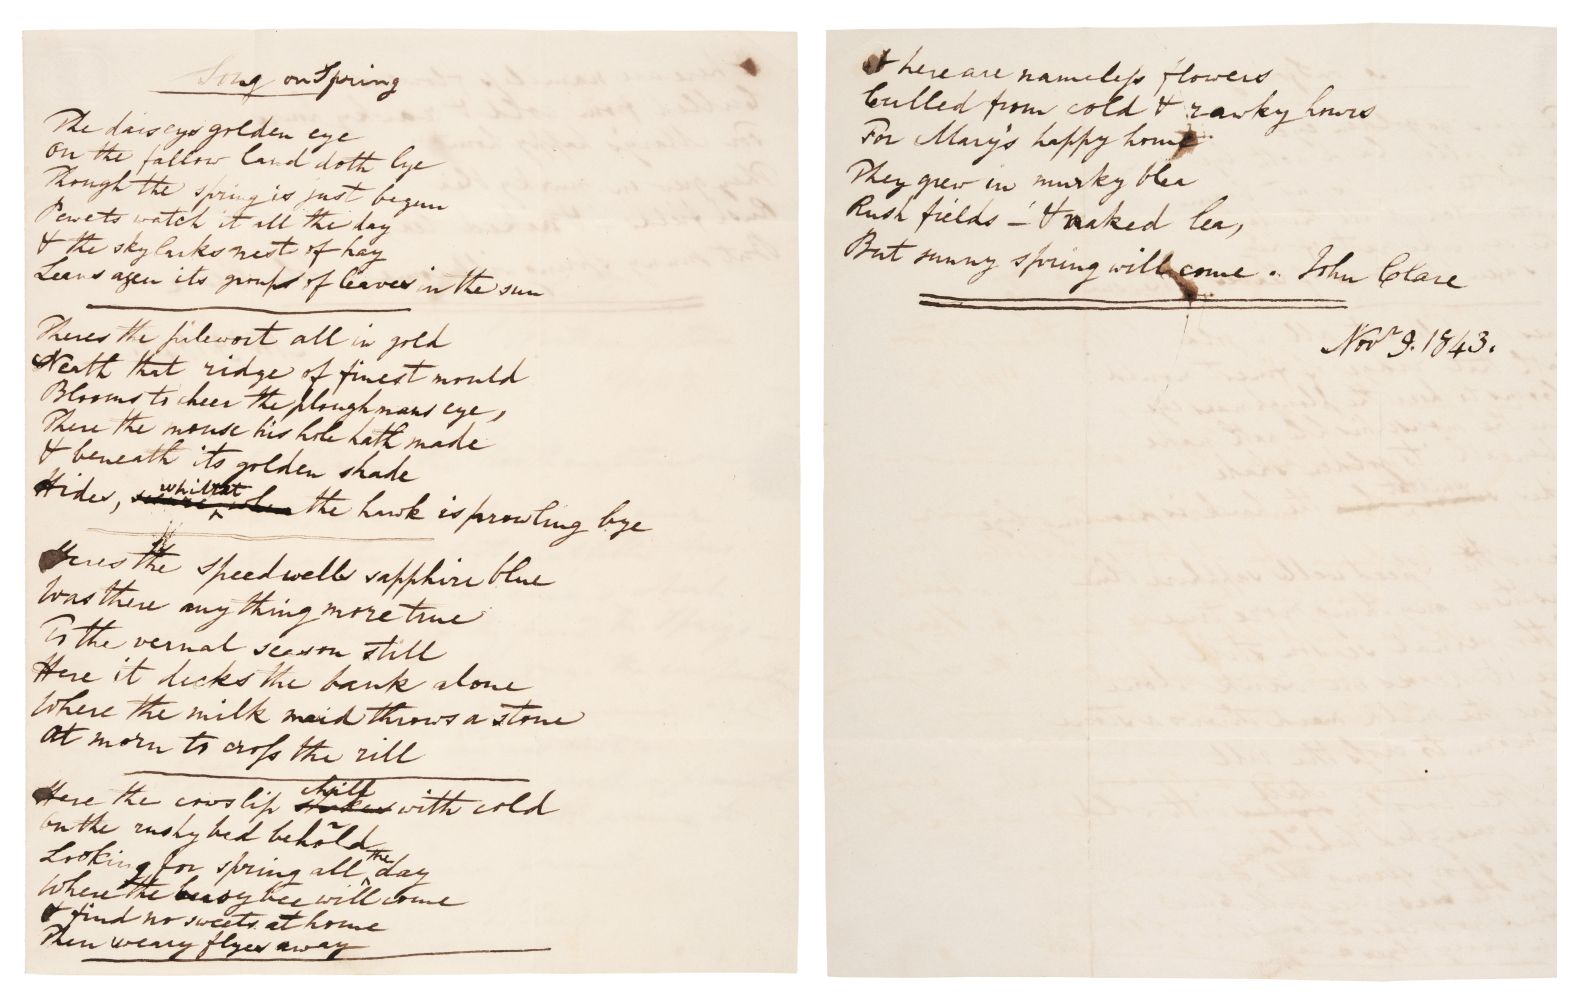 Song on Spring
The daiseys golden eye
On the fallow land doth lye
Though the spring is just begun
Pewets watch it all the day
& the skylarks nest of hay
Leans agen its groups of leaves in the sun
Theres the pilewort all in gold
Neath that ridge of finest mould
Blooms to cheer the ploughmans eye,
There the mouse his hole hath made
& beneath its golden shade
Hides, secure when whilst the hawk is prowling bye
Heres the speedwells sapphire blue
Was there any thing more true
To the vernal season still
Here it decks the bank alone
Where the milk maid throws a stone
At morn to cross the rill
Here the cowslip chill with cold
On the rushy bed behold
Looking for spring all the day
Where the heavy bee will come
& find no sweets at home
Then weary flyes away
& here are nameless flowers
Culled from cold & rawky hours
For Mary's happy home
They grew in murky blea
Rush fields – & naked lea,
But sunny spring will come. John Clare
Novr 9. 1843.